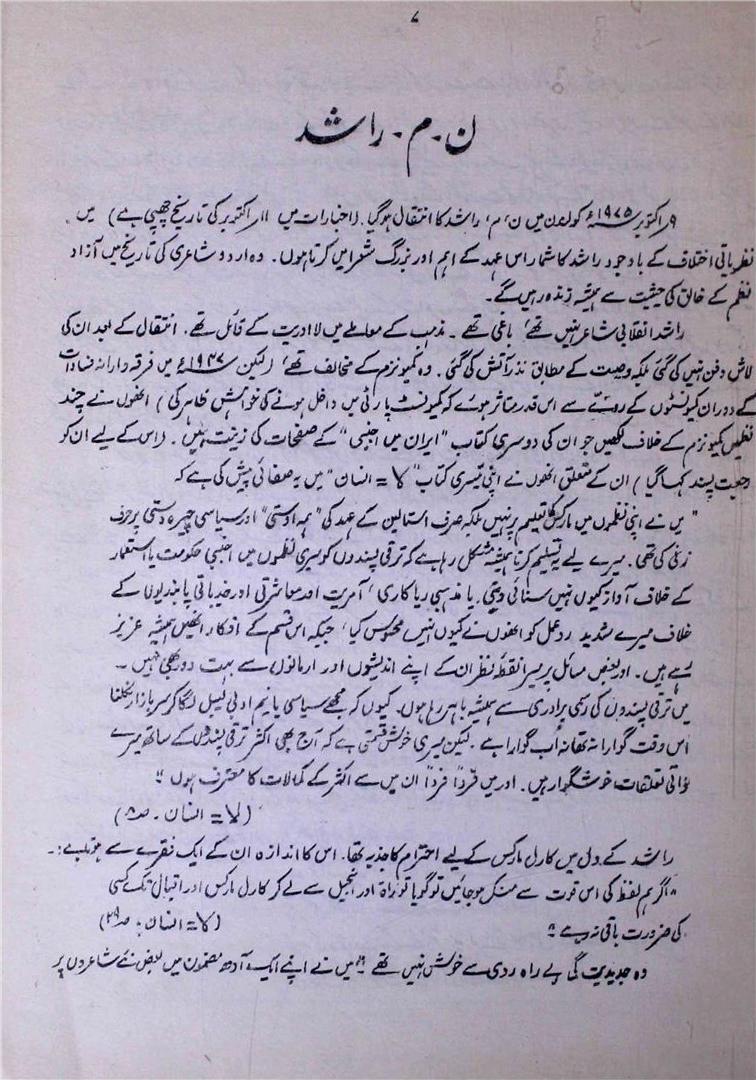 ۷
ن ۔ م ۔ راشد
۹ر اکتوبر ۱۹۷۵ء کو لندن میں ن، م، راشد کا انتقال ہو گیا۔ (اخبارات میں ۱۱ اکتوبر کی تاریخ چھپی ہے) میں
نظریاتی اختلاف کے باوجود راشد کا شمار اس عہد کے اہم اور بزرگ شعرا میں کرتا ہوں۔ وہ اردو شاعری کی تاریخ میں آزاد
نظم کے خالق کی حیثیت سے ہمیشہ زندہ رہیں گے۔
راشد انقلابی شاعر نہیں تھے، باغی تھے۔ مذہب کے معاملے میں لا ادریت کے قائل تھے، انتقال کے بعد ان کی
لاش دفن نہیں کی گئی بلکہ وصیت کے مطابق نذر آتش کی گئی۔ وہ کمیونزم کے مخالف تھے، (لیکن ۱۹۴۷ء میں فرقہ وارانہ فسادات
کے دوران کمیونسٹوں کے رویّے سے اس قدر متاثر ہوئے کہ کمیونسٹ پارٹی میں داخل ہونے کی خواہش ظاہر کی) انھوں نے چند
نظمیں کمیونزم کے خلاف لکھیں جو ان کی دوسری کتاب "ایران میں اجنبی" کے صفحات کی زینت ہیں۔ (اس کے لیے ان کو
رجعت پسند کہا گیا) ان کے متعلق انھوں نے اپنی تیسری کتاب "لا = انسان" میں یہ صفائی پیش کی ہے کہ
"میں نے اپنی نظموں میں مارکس کی تعلیم پر نہیں بلکہ صرف استالین کے عہد کی "ہمہ اوستی" اور سیاسی چیرہ دستی پر حرف
زنی کی تھی۔ میرے لیے یہ تسلیم کرنا ہمیشہ مشکل رہا ہے کہ ترقی پسندوں کو میری نظموں میں اجنبی حکومت یا استعمار
کے خلاف آواز کیوں نہیں سنائی دیتی۔ یا مذہبی ریاکاری، آمریت اور معاشرتی اور جذباتی پابندیوں کے
خلاف میرے شدید ردعمل کو انھوں نے کیوں نہیں محسوس کیا، جبکہ اس قسم کے افکار انھیں ہمیشہ عزیز
رہے ہیں۔ اور بعض مسائل پر میرا نقطۂ نظر ان کے اپنے اندیشوں اور ارمانوں سے بہت دور بھی نہیں۔
میں ترقی پسندوں کی رسمی برادری سے ہمیشہ باہر رہا ہوں۔ کیوں کہ مجھے سیاسی یا نیم ادبی لیبل لگا کر سر بازار نکلنا
اُس وقت گوارا نہ تھا نہ اب گوارا ہے۔ لیکن میری خوش قسمتی ہے کہ آج بھی اکثر ترقی پسندوں کے ساتھ میرے
ذاتی تعلقات خوشگوار ہیں۔ اور میں فرداً فرداً ان میں سے اکثر کے کمالات کا معترف ہوں"
(لا = انسان۔ صہ ۸)
راشد کے دل میں کارل مارکس کے لیے احترام کا جذبہ تھا۔ اس کا اندازہ ان کے ایک فقرے سے ہوتا ہے:۔
"اگر ہم لفظ کی اس قوت سے منکر ہو جائیں تو گویا توراۃ اور انجیل سے لے کر کارل مارکس اور اقبال تک کسی
کی ضرورت باقی نہ رہے" (لا = انسان، صہ ۲۹)
وہ جدیدیت کی بے راہ روی سے خوش نہیں تھے "میں نے اپنے ایک آدھ مضمون میں بعض نئے شاعروں پر